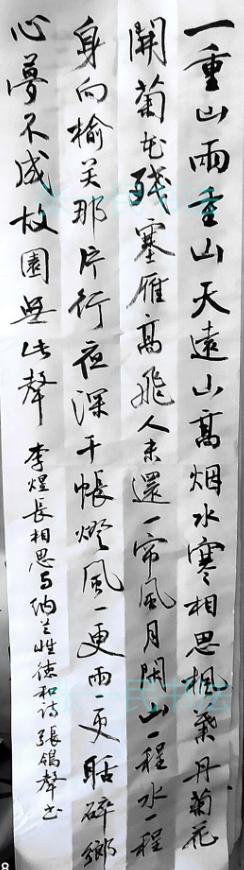 一重山兩重山天遠山高烟水寒相思楓葉丹菊花
開菊花殘塞雁高飛人未還一帘風月閑山一程水一程
身向榆关那片行夜深千帳燈風一更雨更聒碎鄉
心夢不成故園無此聲 李煜長相思与纳兰性德和诗張鴿聲书
张一民书法
8